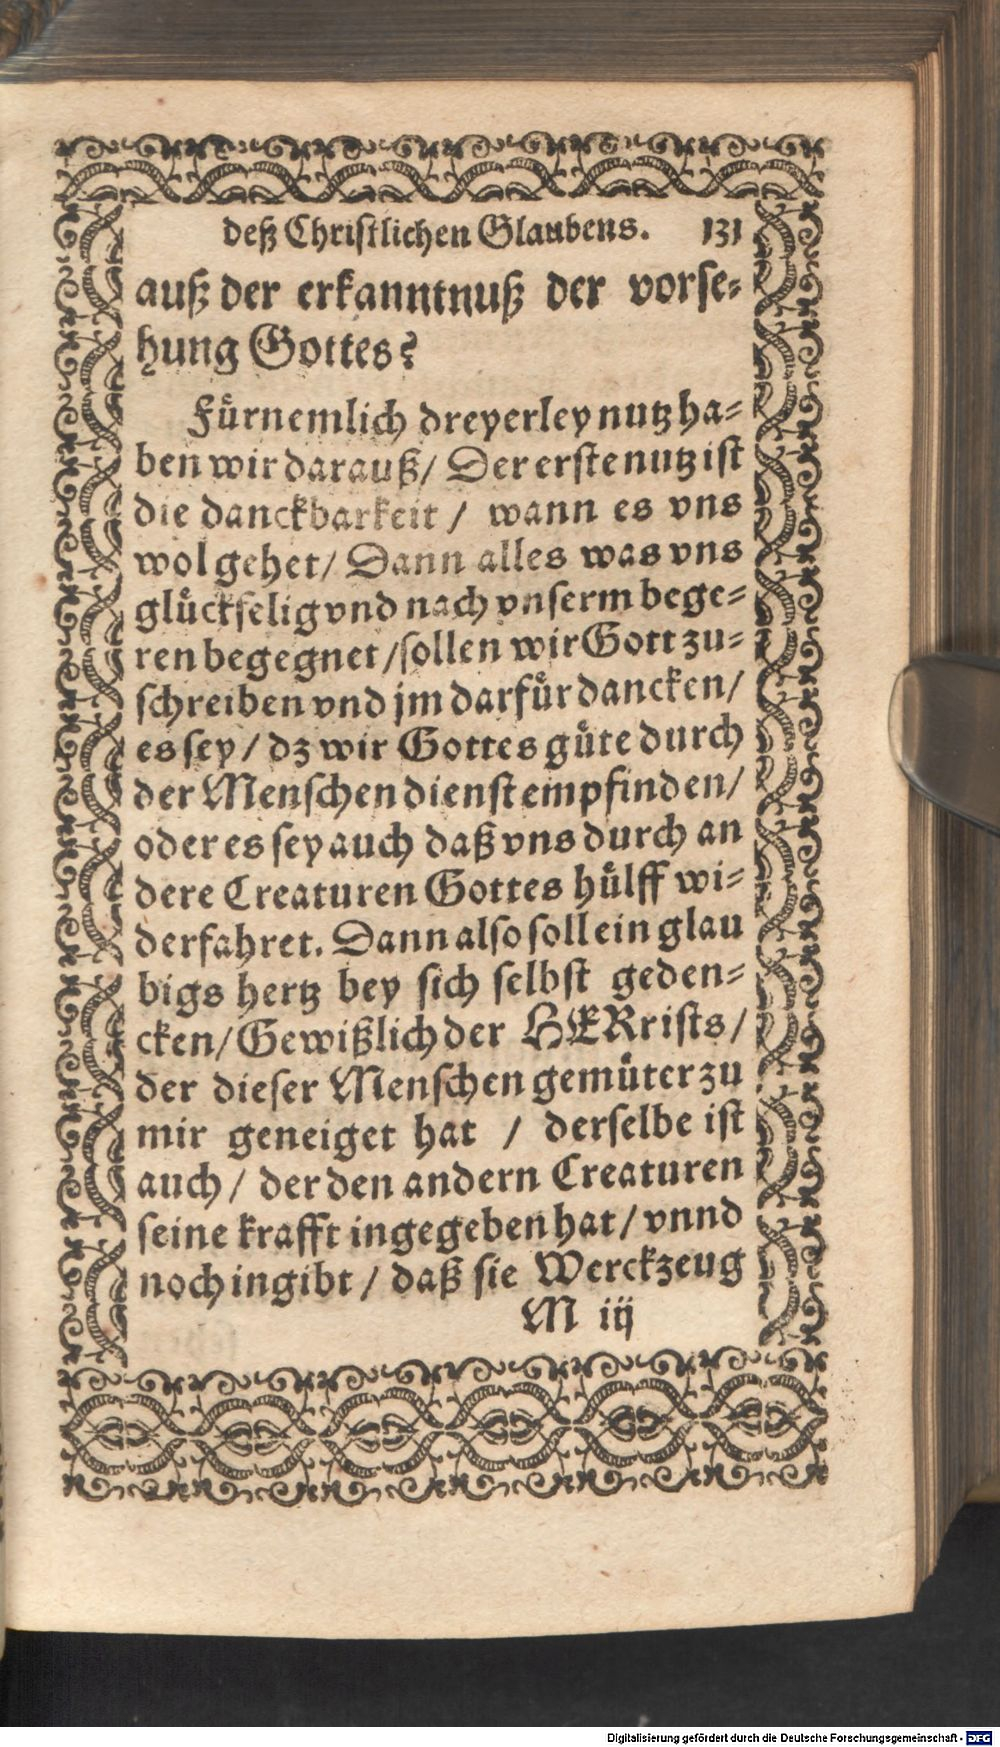 deß Christlichen Glaubens. 131
auß der erkanntnuß der vorse-
hung Gottes?
Fürnemlich dreyerley nutz ha-
ben wir darauß/ Der erste nutz ist
die danckbarkeit / wann es vns
wol gehet/ Dann alles was vns
glückselig vnd nach vnserm bege-
ren begegnet/sollen wir Gott zu-
schreiben vnd jm darfür dancken/
es sey / dz wir Gottes güte durch
der Menschen dienst empfinden/
oder es sey auch daß vns durch an
dere Creaturen Gottes hülff wi-
derfahret. Dann also soll ein glau
bigs hertz bey sich selbst geden-
cken/ Gewißlich der HERR ists/
der dieser Menschen gemüter zu
mir geneiget hat / derselbe ist
auch / der den andern Creaturen
seine krafft ingegeben hat / vnnd
noch ingibt / daß sie Werckzeug
M iij
Digitalisierung gefördert durch die Deutsche Forschungsgemeinschaft - DFG